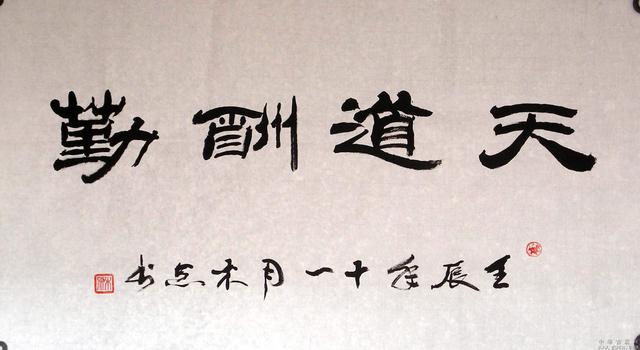 天道酬勤
壬辰年十一月木书